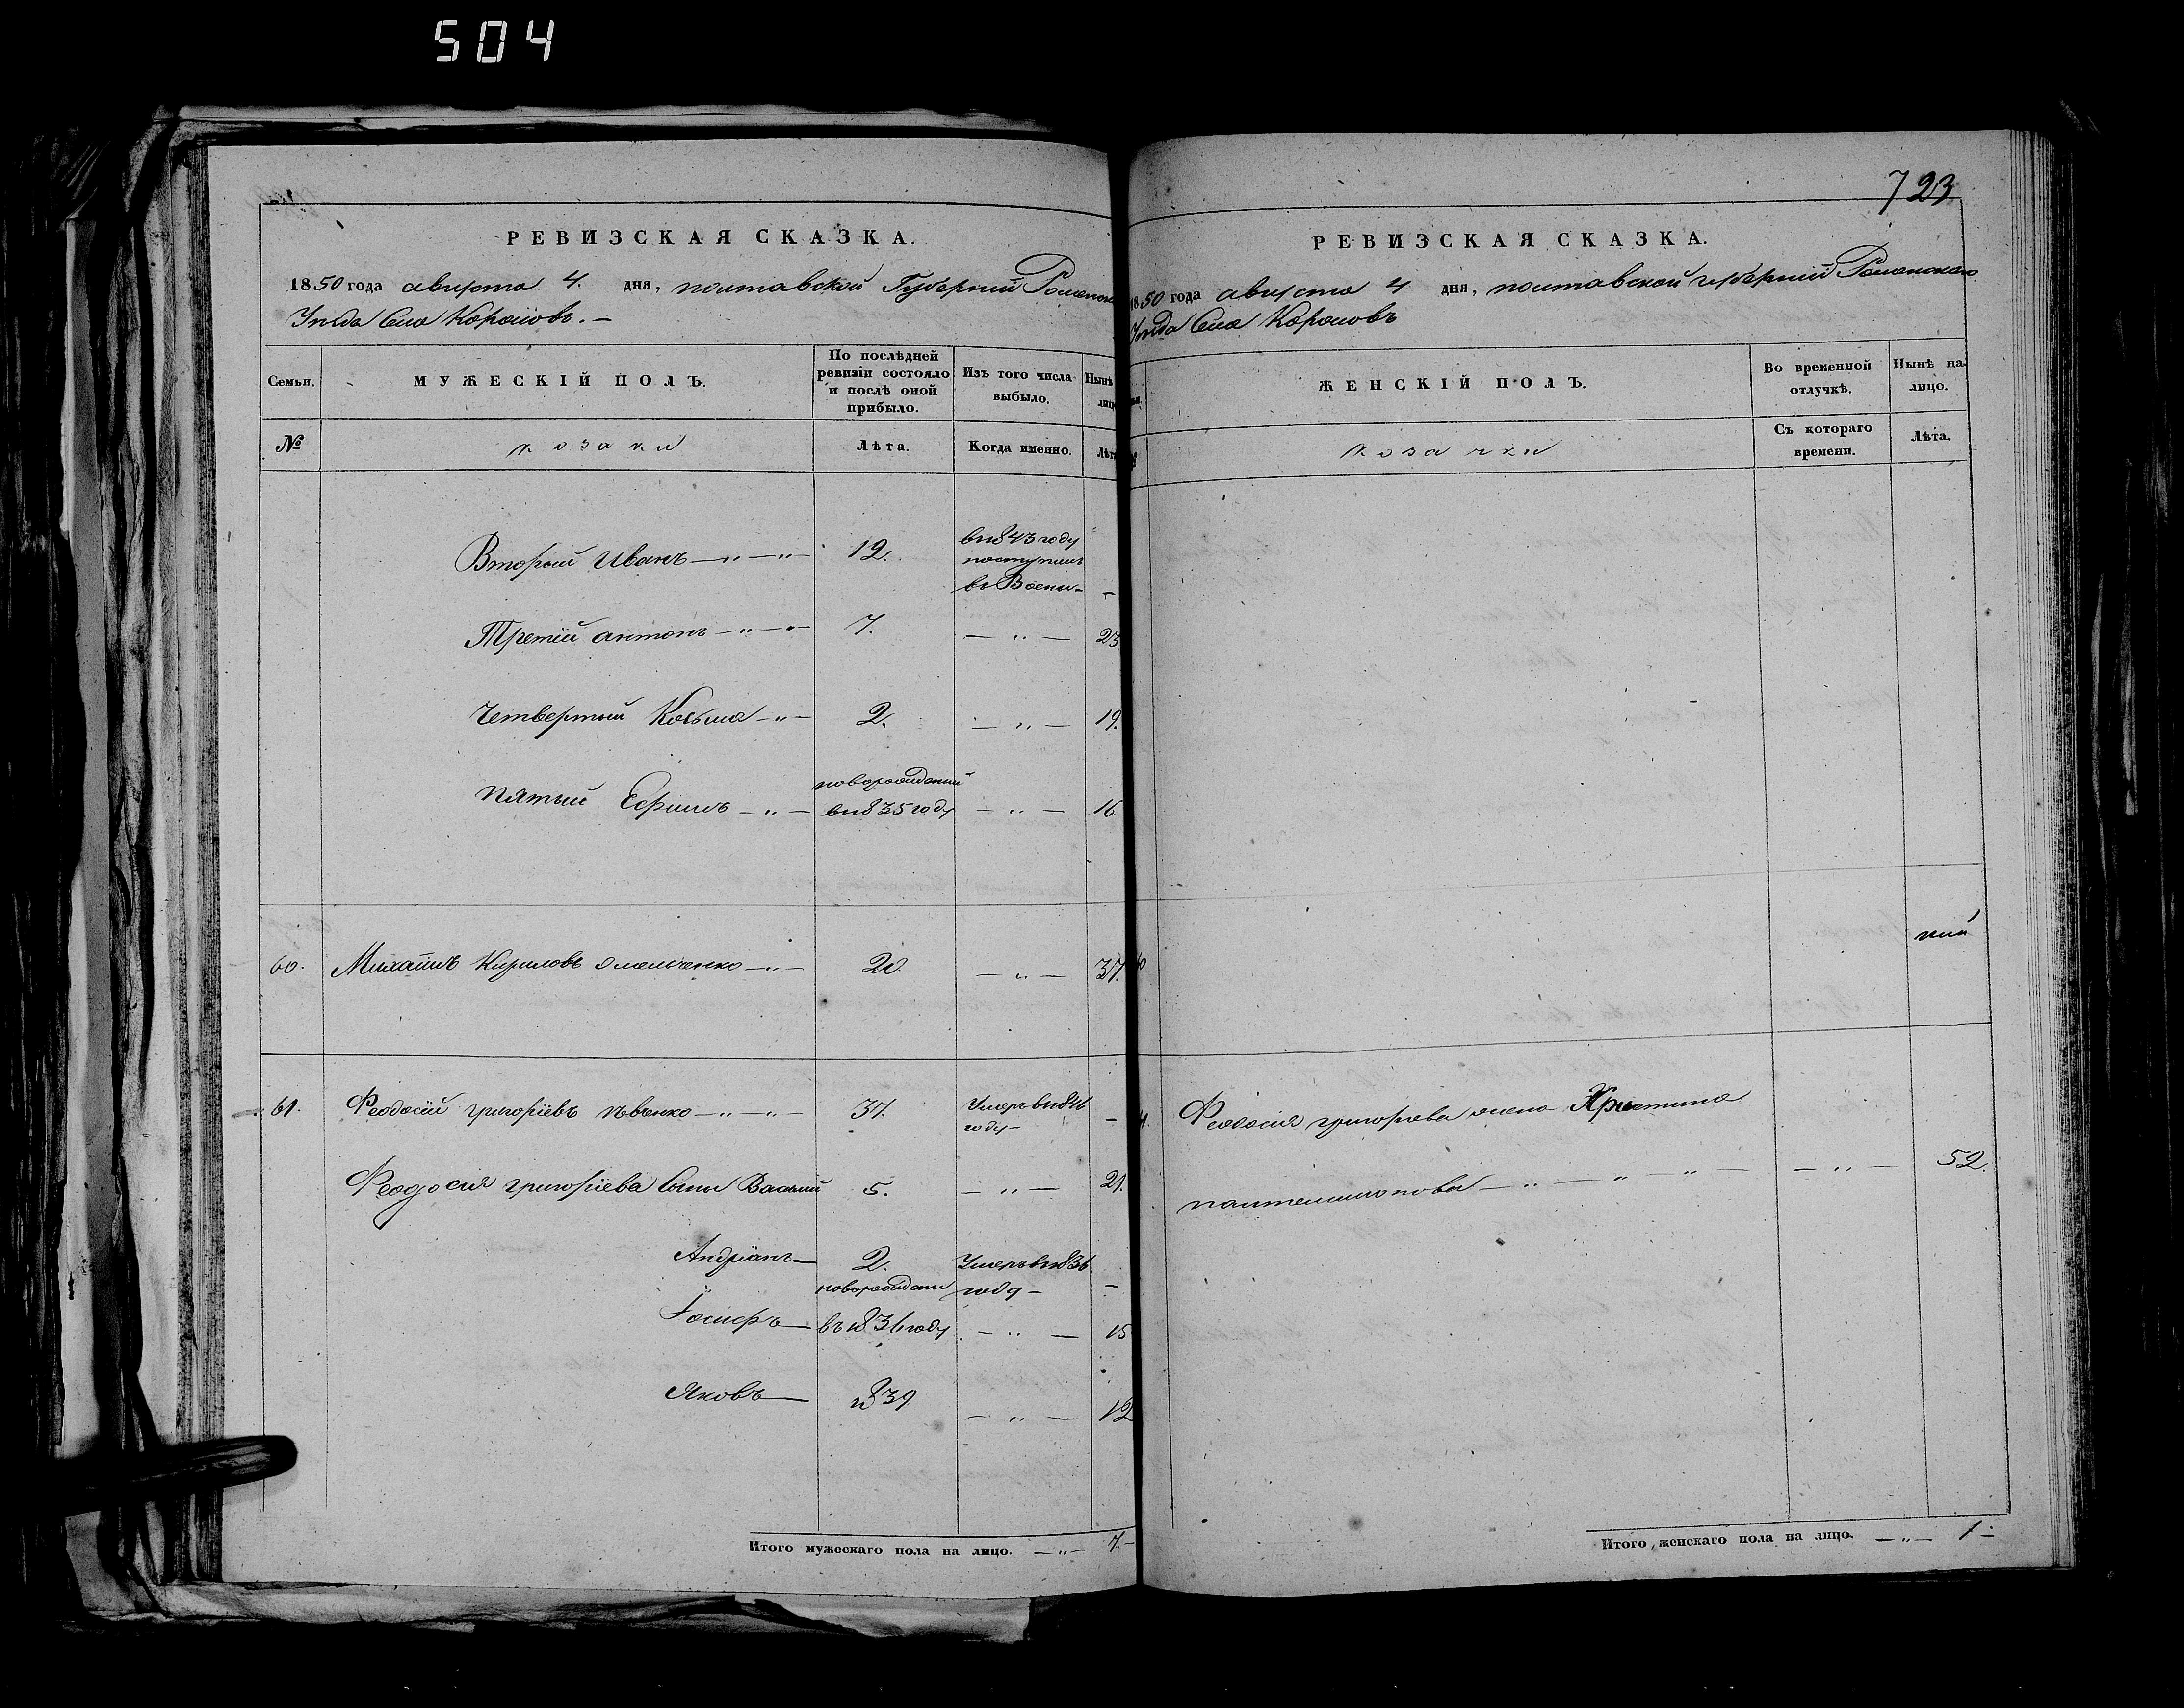 504
РЕВИЗСКАЯ СКАЗКА.
1850 года августа 4. дня, полтавской Губерніи Роменск
Уезда Села Корововъ. –
Семьи.
МУЖЕСКІЙ ПОЛЪ.
По послѣдней ревизіи состояло и послѣ оной прибыло.
Изъ того числа выбыло.
Нынѣ лицо
№
козаки
Лѣта.
Когда именно.
Лѣта
Вторый Иванъ 12. въ 1843 году
поступилъ
въ Воены –
Третій антонъ 7. 23
Четвертый Косьма 2. 19.
Пятый Ефимъ новорожденный
въ 1835 году 16
60. Михаилъ Кириловъ Омельченко 20 37.
61. Феодосій григоріевъ 37. Умеръ въ 1846
году – –
Феодосія григоріева сыны Василий 5. 21.
Андріанъ 2. Умеръ въ 1836
году – –
Іосифъ новорожден
въ 1836 году 15
Яковъ 1839 12
Итого мужескаго пола на лицо. 7. –
723
РЕВИЗСКАЯ СКАЗКА.
1850 года августа 4 дня, полтавской губерніи Роменскаго
Уезда Села Корововъ
ЖЕНСКІЙ ПОЛЪ.
Во временной отлучкѣ.
Нынѣ на-лицо.
козачки
Съ котораго времени.
Лѣта.
60
61. Феодосія григорева жена Христина
пантелимонова 52.
Итого женскаго пола на лицо. 1 –